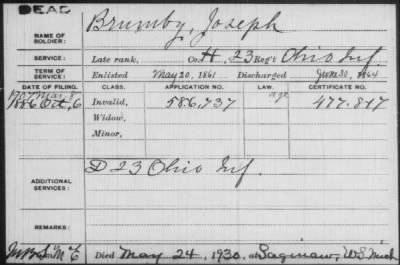 DEAD
NAME OF SOLDIER: Brumby, Joseph
SERVICE: Late rank, Co. H, 23 Reg't Ohio Inf
TERM OF SERVICE: Enlisted May 20, 1861 Discharged June 30, 1864
DATE OF FILING. CLASS. APPLICATION NO. LAW. CERTIFICATE NO.
1907 Mar. 8 age
1886 Oct, 6 Invalid, 586,737 477.847
Widow,
Minor,
ADDITIONAL SERVICES: D 23 Ohio Inf.
REMARKS:
Died May 24, 1930, at Saginaw, W.S. Mich